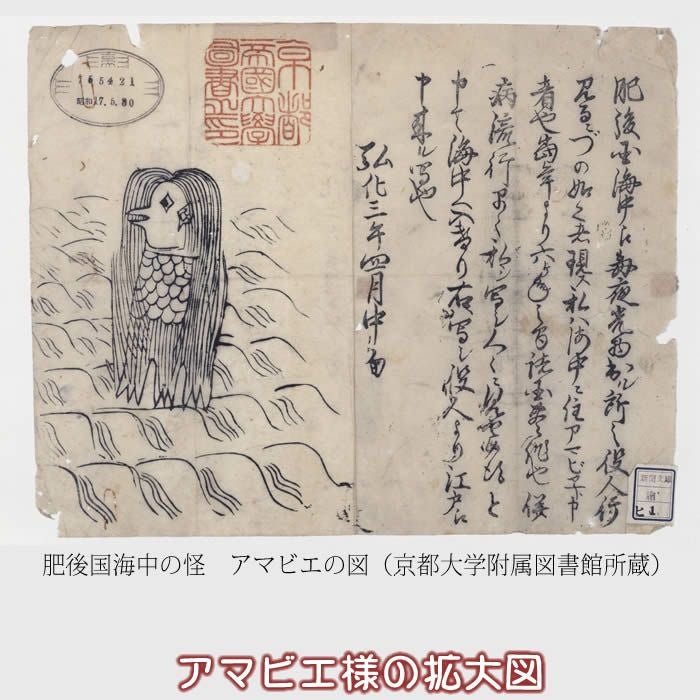 肥後国海中え毎夜光物出ル所之役人行
見るニづの如く之者現ス私ハ海中ニ住アマビヱト申
者也當年より六ヶ年之間諸国豊作也併
病流行早々私ヲ写シ人々ニ見せ候得と
申て海中へ入けり右写シ役人より江戸え
申来ル写也
弘化三年四月中旬
京都
帝國大學
圖書之印
165421
昭和17.5.30
新聞文庫
肥後国海中の怪 アマビエの図（京都大学附属図書館所蔵）
アマビエ様の拡大図